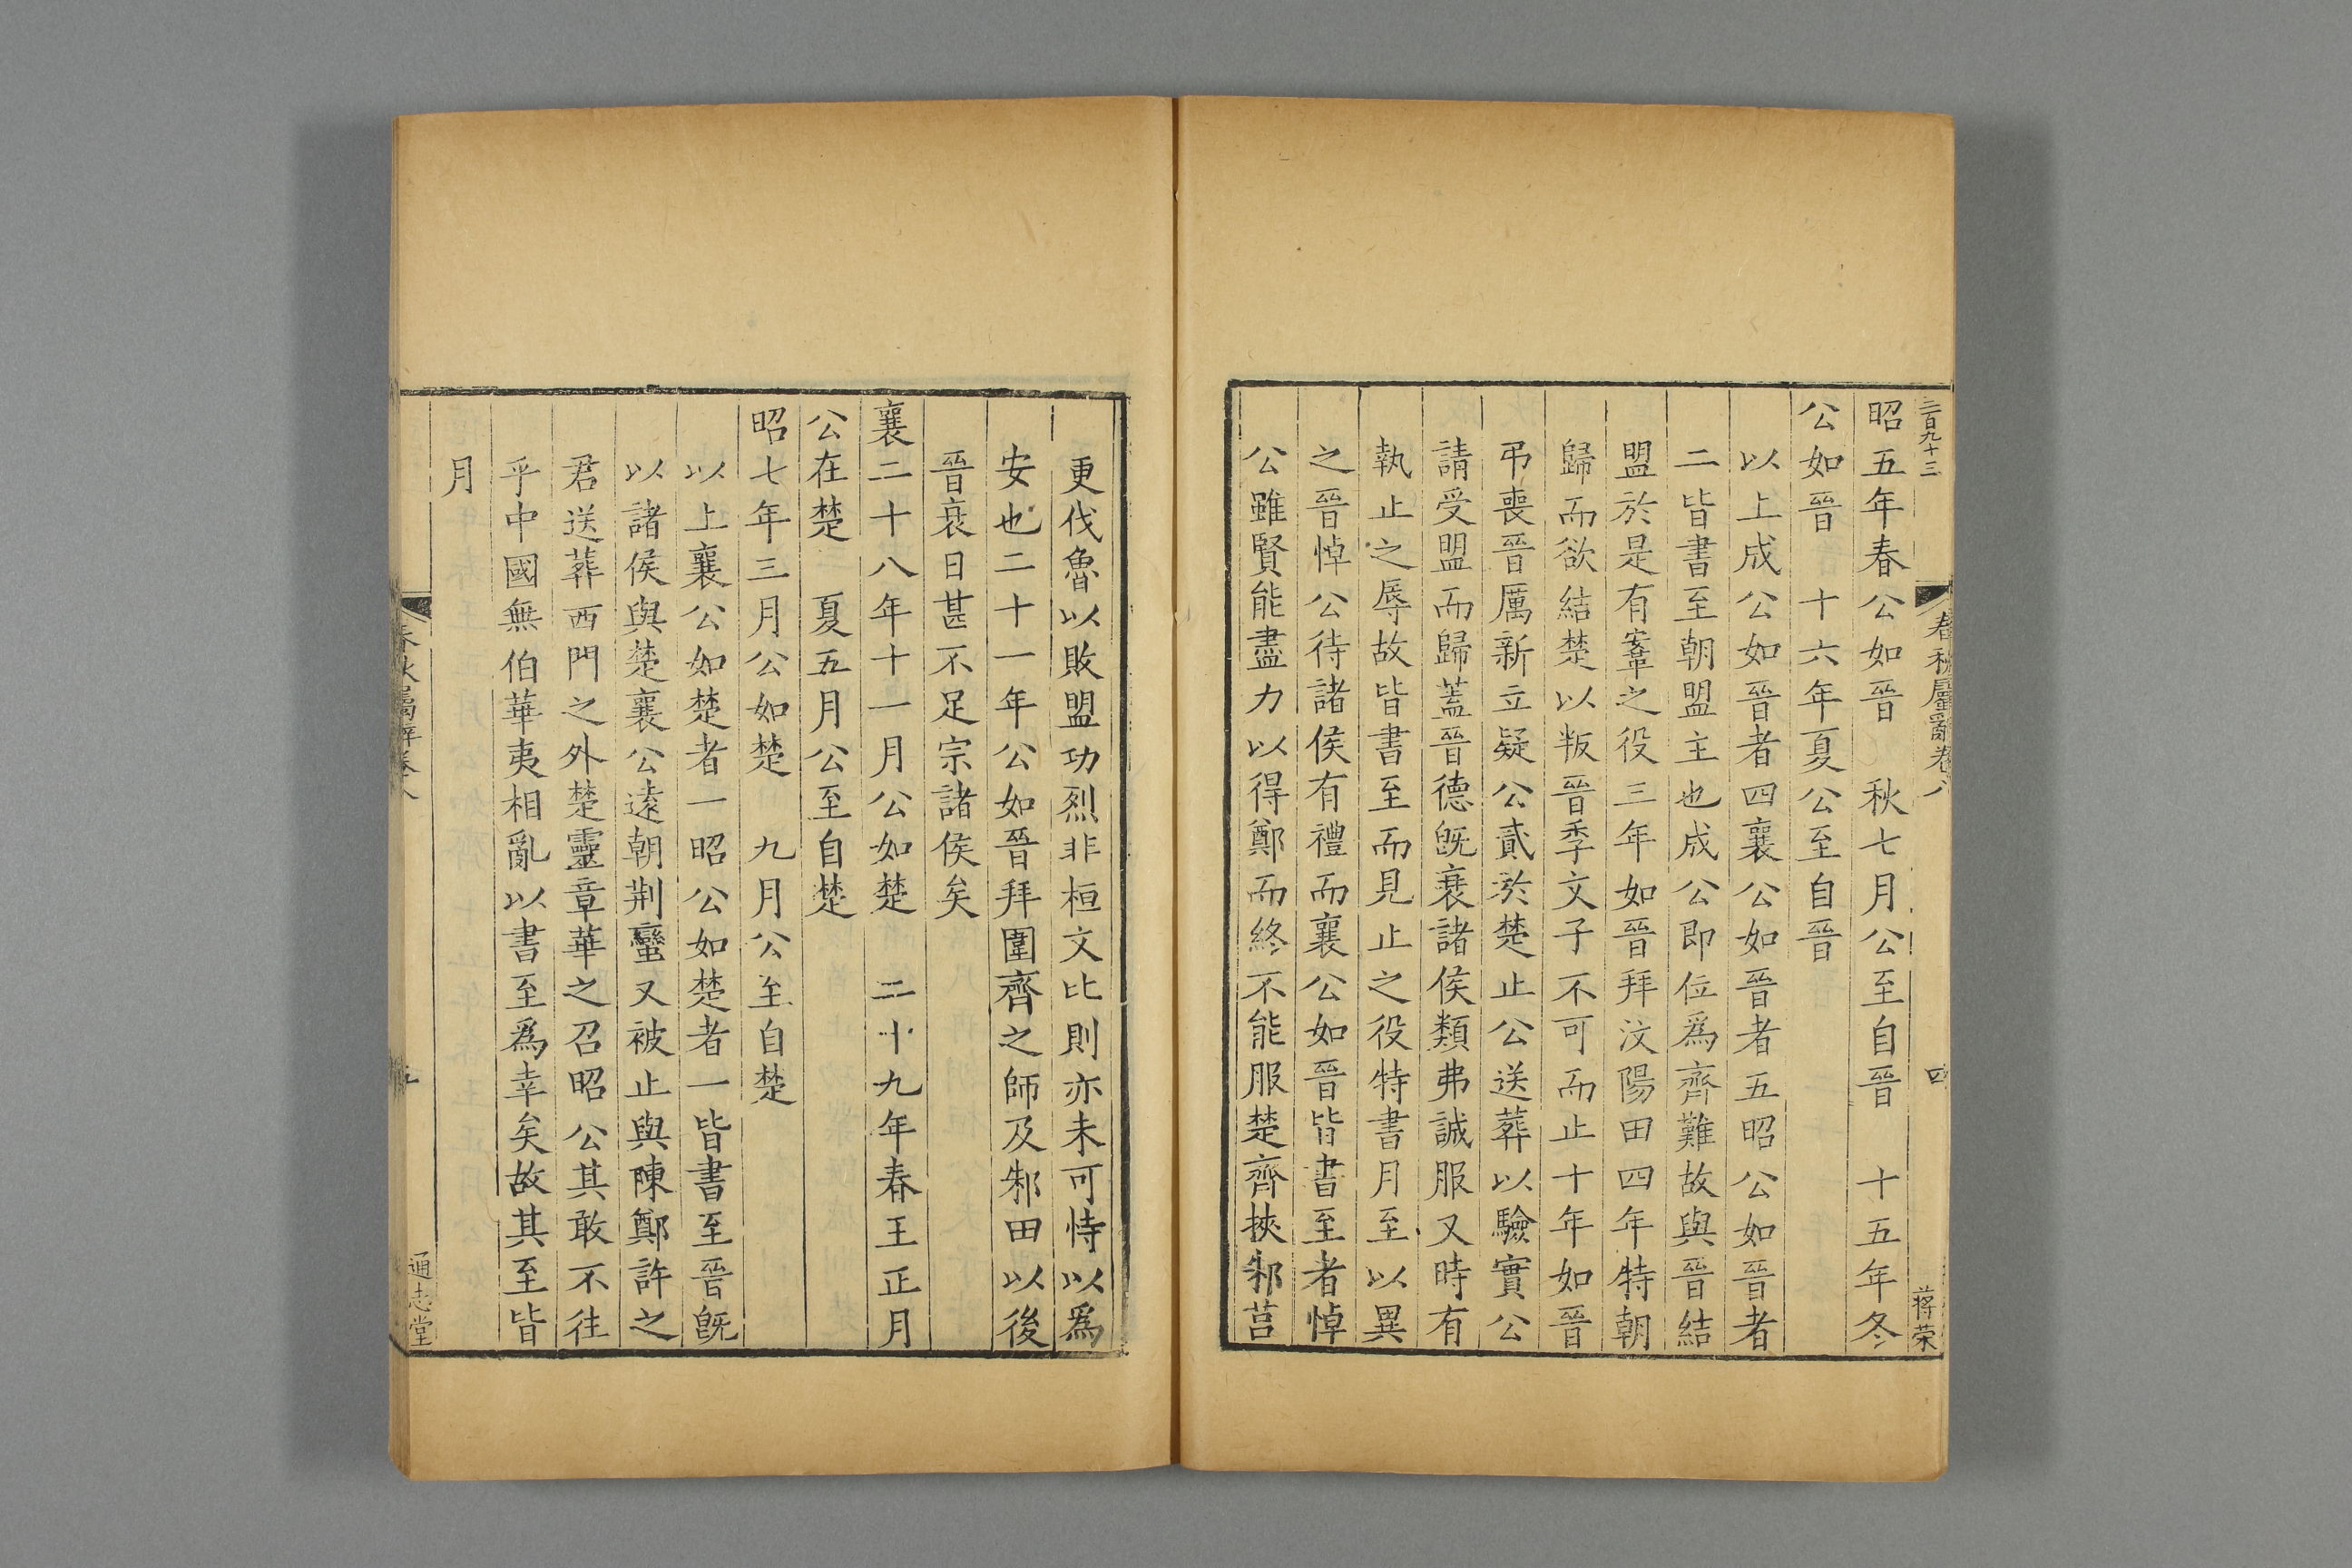 二百九十三
春秋屬辭卷八
四
蒋荣
昭五年春公如晉　秋七月公至自晉　十五年冬
公如晉　十六年夏公至自晉
以上成公如晉者四襄公如晉者五昭公如晉者
二皆書至朝盟主也成公即位爲齊難故與晉結
盟於是有鞌之役三年如晉拜汶陽田四年特朝
歸而欲結楚以叛晉季文子不可而止十年如晉
弔喪晉厲新立疑公貳於楚止公送葬以驗實公
請受盟而歸蓋晉德旣衰諸侯類弗誠服又時有
執止之辱故皆書至而見止之役特書月至以異
之晉悼公待諸侯有禮而襄公如晉皆書至者悼
公雖賢能盡力以得鄭而終不能服楚齊挾邾莒
更伐魯以敗盟功烈非桓文比則亦未可恃以爲
安也二十一年公如晉拜圍齊之師及邾田以後
晉衰日甚不足宗諸侯矣
襄二十八年十一月公如楚　二十九年春王正月
公在楚　夏五月公至自楚
昭七年三月公如楚　九月公至自楚
以上襄公如楚者一昭公如楚者一皆書至晉旣
以諸侯與楚襄公遠朝荆蠻又被止與陳鄭許之
君送葬西門之外楚靈章華之召昭公其敢不往
乎中國無伯華夷相亂以書至爲幸矣故其至皆
月
春秋屬辭卷八
五
通志堂